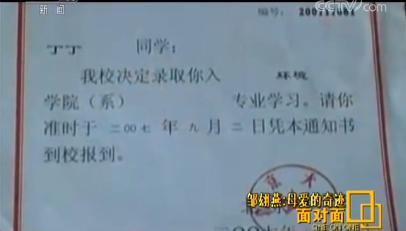 新闻
CCTV
编号:
丁丁 同学:
我校决定录取你入 环境
学院(系) 专业学习。请你
准时于 二00七 年 九 月 二 日凭本通知书
到校报到。
邹翃燕:母爱的奇迹
面对面
ONE ON ONE